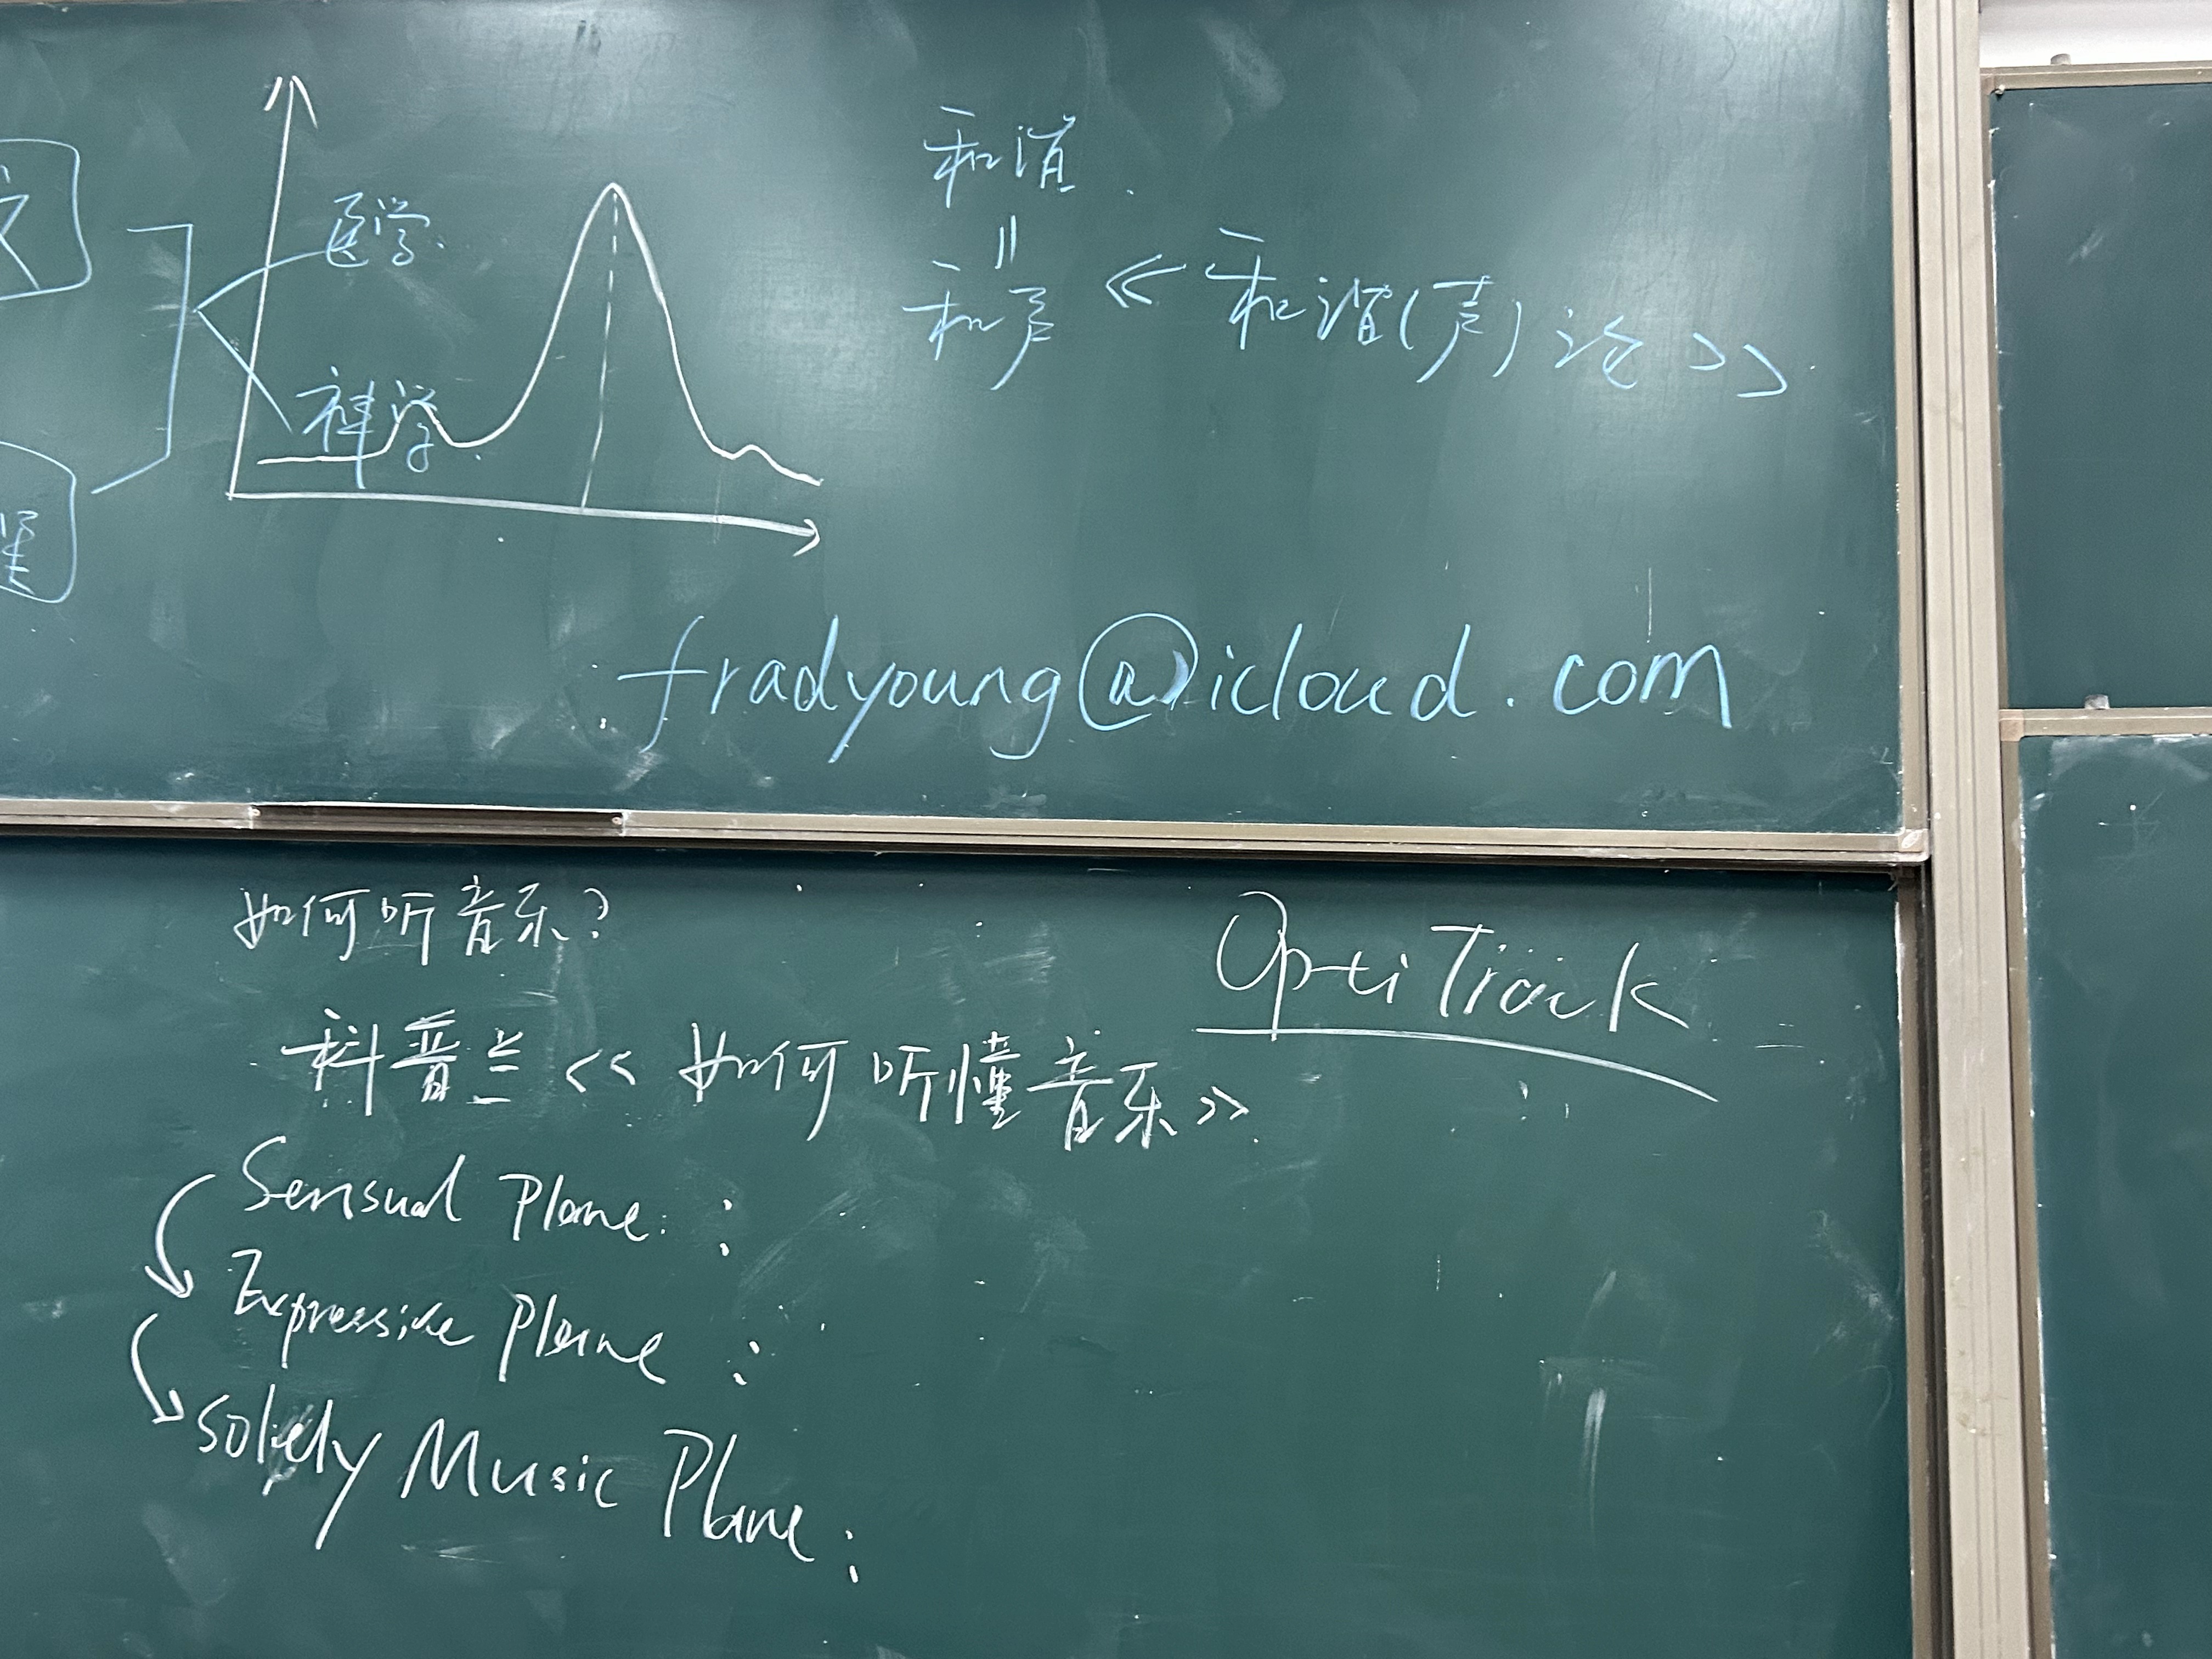 医学
科学
和谐
||
和声 《和谐(声)论》
fradyoung@icloud.com
如何听音乐?
OptiTrack
科普兰《如何听懂音乐》
Sensual Plane :
Expressive Plane :
Solely Music Plane :